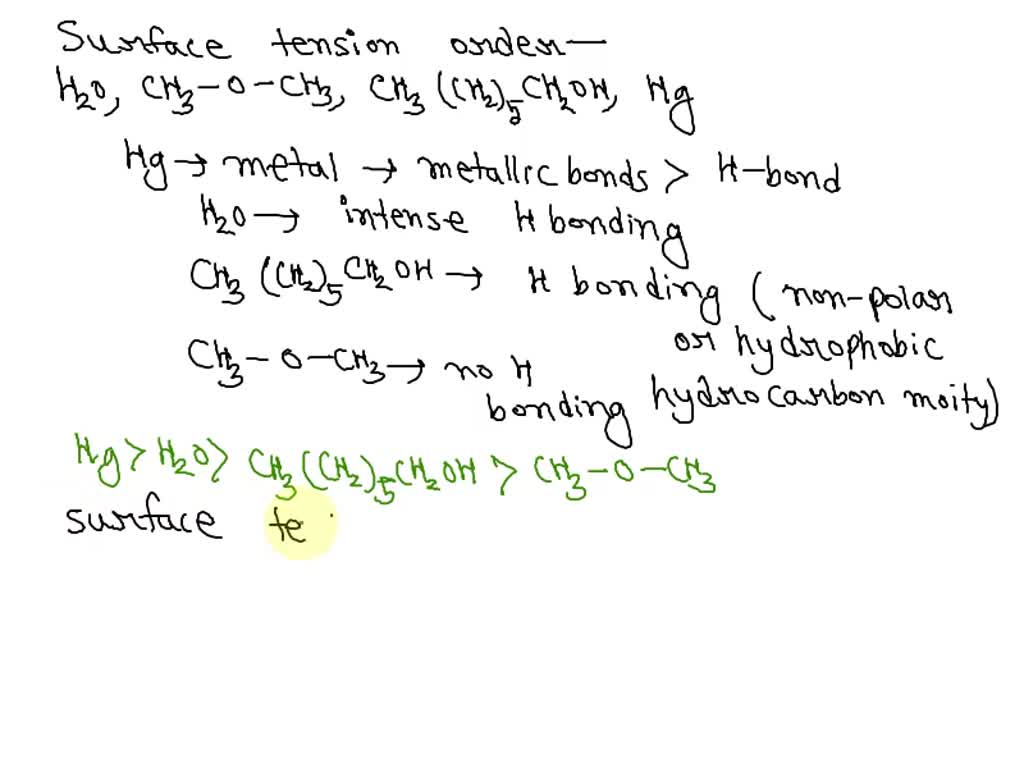 Surface tension order—
H₂O, CH₃-O-CH₃, CH₃(CH₂)₅CH₂OH, Hg
Hg → metal → metallic bonds > H-bond
H₂O → intense H bonding
CH₃(CH₂)₅CH₂OH → H bonding (non-polar
or hydrophobic
hydrocarbon moity)
CH₃-O-CH₃ → no H
bonding
Hg > H₂O > CH₃(CH₂)₅CH₂OH > CH₃-O-CH₃
surface te